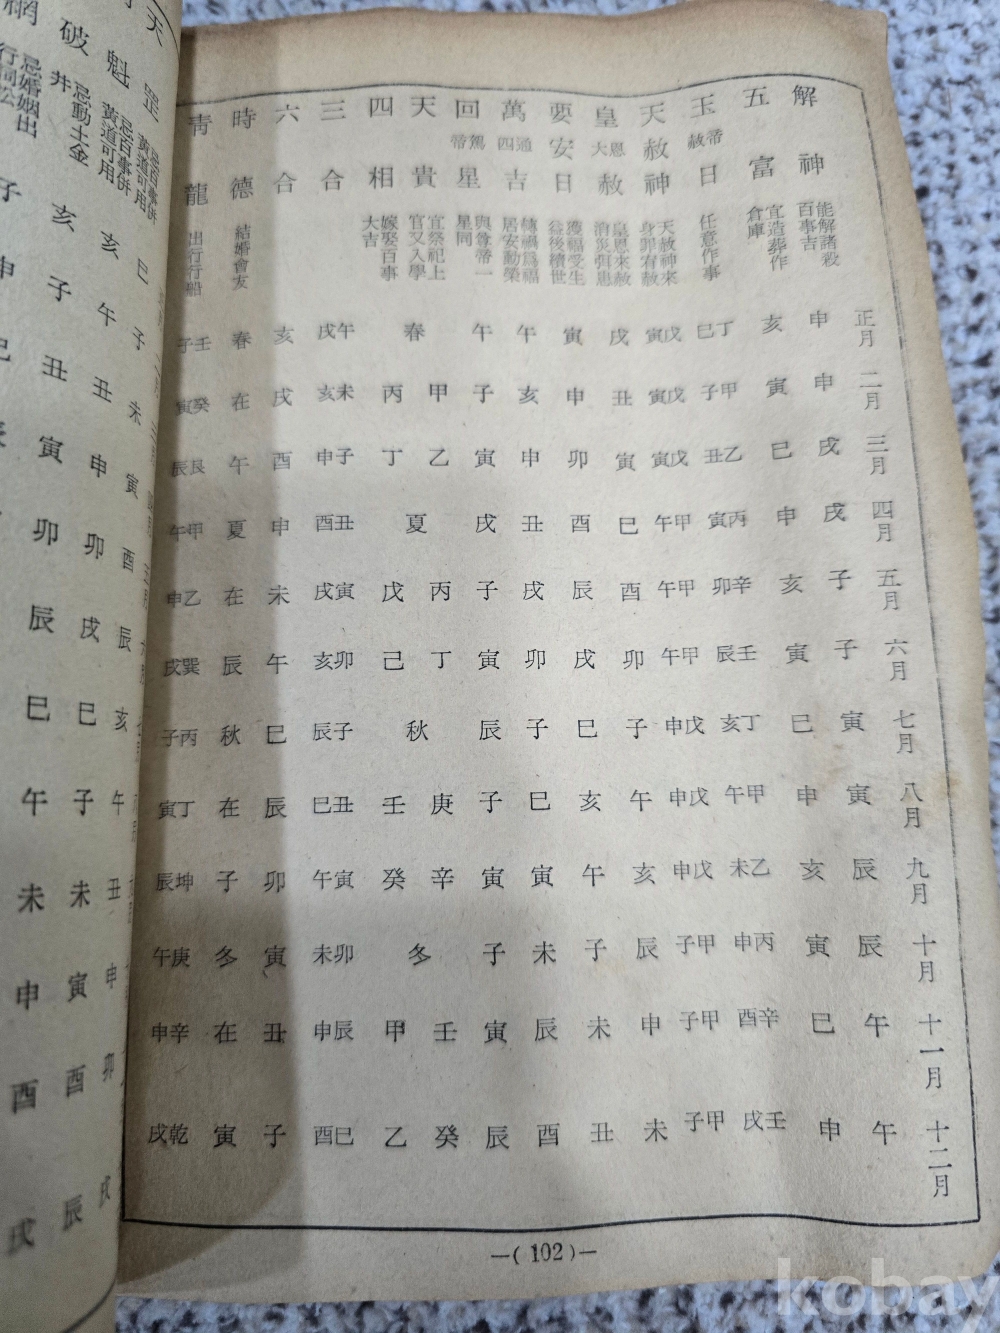 正月 二月 三月 四月 五月 六月 七月 八月 九月 十月 十一月 十二月
解神 能解諸殺百事吉 申 申 戌 戌 子 子 寅 寅 辰 辰 午 午
五富 宜造葬作倉庫 亥 寅 巳 申 亥 寅 巳 申 亥 寅 巳 申
玉帝赦日 任意作事 丁巳 甲子 乙丑 丙寅 辛卯 壬辰 丁亥 甲午 乙未 丙申 辛酉 壬戌
天赦神 天赦神來身罪宥赦 戊寅 戊寅 戊寅 甲午 甲午 甲午 戊申 戊申 戊申 甲子 甲子 甲子
皇恩大赦 皇恩來赦消災弭患 戌 丑 寅 巳 酉 卯 子 午 亥 辰 申 未
要安日 獲福受生益後續世 寅 申 卯 酉 辰 戌 巳 亥 午 子 未 丑
萬通四吉 轉禍爲福居安動榮 午 亥 申 丑 戌 卯 子 巳 寅 未 辰 酉
回駕帝星 與尊帝一星同 午 子 寅 戌 子 寅 辰 子 寅 子 寅 辰
天貴 宜祭祀上官又入學 春 甲 乙 夏 丙 丁 秋 庚 辛 冬 壬 癸
四相 嫁娶百事大吉 丙 丁 戊 己 壬 癸 甲 乙
三合 午戌 未亥 子申 丑酉 寅戌 卯亥 子辰 丑巳 寅午 卯未 辰申 巳酉
六合 亥 戌 酉 申 未 午 巳 辰 卯 寅 丑 子
時德 結婚會友 春 在 午 夏 在 辰 秋 在 子 冬 在 寅
青龍 出行行船 壬子 癸寅 艮辰 甲午 乙申 巽戌 丙子 丁寅 坤辰 庚午 辛申 乾戌
—(102)—
天罡 忌百事併黃道可用 巳 子 未 寅 酉 辰 亥 午 丑 申 卯 戌
魁 忌百事併黃道可用 亥 午 丑 申 卯 戌 巳 子 未 寅 酉 辰
破 忌動土金井 亥 子 丑 寅 卯 辰 巳 午 未 申 酉 戌
網 忌婚姻出行詞訟 子 申 巳
kobay